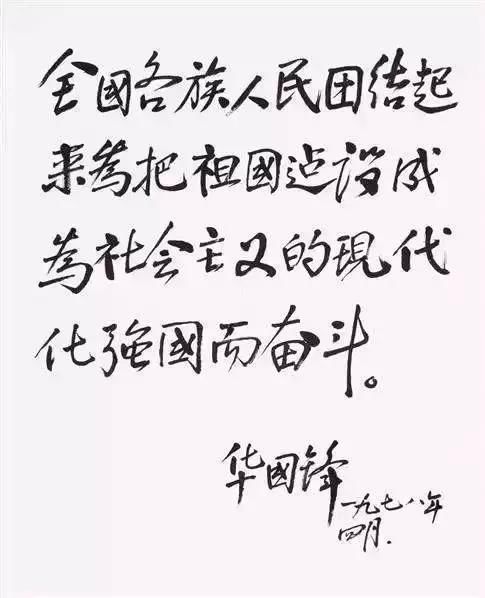 全國各族人民团结起
来為把祖國建设成
為社会主义的現代
化强國而奋斗。
华國锋
一九七八年
四月.